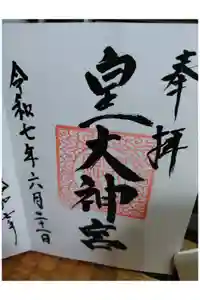 奉拝
皇大神宮
令和七年六月二十一日